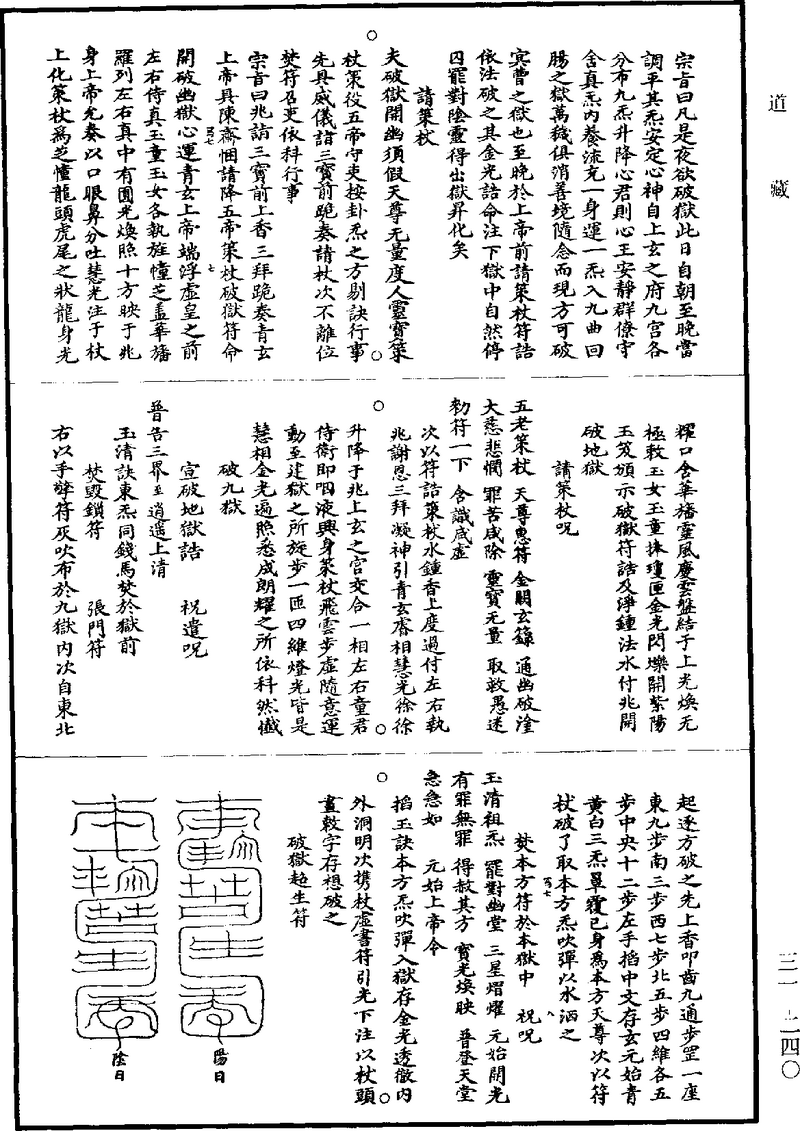 道藏
宗旨曰凡是夜欲破獄此日自朝至晚當
調平其炁安定心神自上玄之府九宮各
分布九炁升降心君則心王安靜群僚守
舍真炁內養流充一身運一炁入九曲回
腸之獄萬穢俱消善境隨念而現方可破
寅曹之獄也至晚於上帝前請策杖符誥
依法破之其金光誥命注下獄中自然停
囚罷對陰靈得出獄昇化矣
請策杖
夫破獄開幽須假天尊无量度人靈寶策
杖策役五帝守吏按卦炁之方剔訣行事
先具威儀詣三寶前跪奏請杖次不離位
焚符召吏依科行事
宗旨曰兆請三寶前上香三拜跪奏青玄
上帝具陳齋悃請降五帝策杖破獄符命
開破幽獄心運青玄上帝端浮虛皇之前
左右侍真玉童玉女各執旌幢芝蓋華旛
羅列左右真中有圓光煥照十方映于兆
身上帝允奏以口眼鼻分吐慧光注于杖
上化策杖為芝幢龍頭虎尾之狀龍身光
耀口含華旛靈風慶雲盤結于上光煥无
極敕玉女玉童捧瓊匣金光閃爍開紫陽
玉笈頒示破獄符誥及淨鍾法水付兆開
破地獄
請策杖呪
五老策杖 天尊惠符 金闕玄籙 通幽破塗
大慈悲憫 罪苦咸除 靈寶无量 取敢愚迷
勑符一下 含識咸虛
次以符誥策杖水鍾香上度過付左右執
兆謝恩三拜凝神引青玄唇相慧光徐徐
升降于兆上玄之宮交合一相左右童君
侍衛即咽液興身策杖飛雲步虛隨意運
動至建獄之所旋步一匝四維燈光皆是
慧相金光遍照悉成朗耀之所依科然懺
破九獄
宣破地獄誥 祝遣呪
普告三界至逍遥上清
玉清訣東炁同錢馬焚於獄前
焚毀鎖符 張門符
右以手擎符灰吹布於九獄內次自東北
起逐方破之先上香叩齒九通步罡一座
東九步南三步西七步北五步四維各五
步中央十二步左手掐中文存玄元始青
黃白三炁罩覆己身為本方天尊次以符
杖破了取本方炁吹彈以水洒之
焚本方符於本獄中 祝呪
玉清祖炁 罷對幽堂 三星熠燿 元始開光
有罪無罪 得赦其方 寶光煥映 普登天堂
急急如 元始上帝令
掐玉訣本方炁吹彈入獄存金光透徹內
外洞明次携杖虛書符引光下注以杖頭
畫敕字存想破之
破獄超生符
陽日
陰日
三一—二四〇